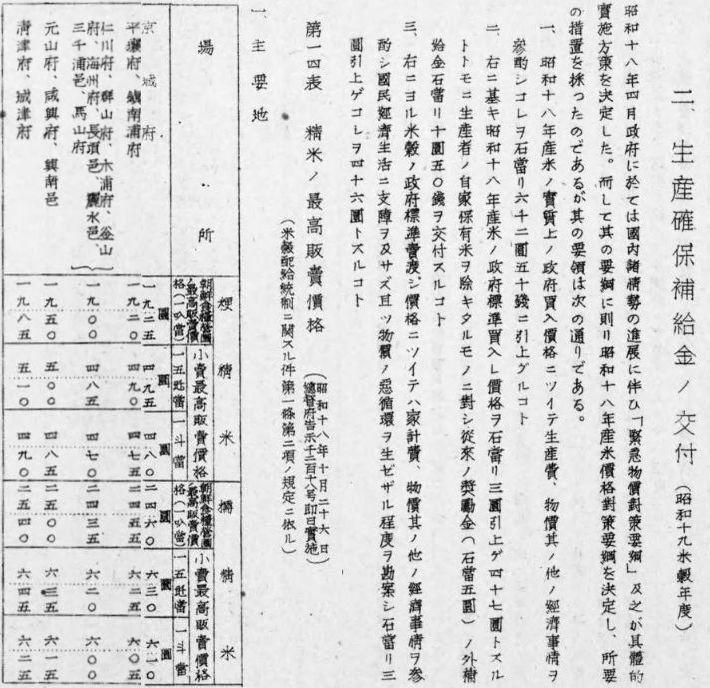 二、生産確保補給金ノ交付（昭和十九米穀年度）
昭和十八年四月政府に於ては國内諸情勢の進展に伴ひ「緊急物價對策要綱」及之が具體的
實施方策を決定した。而して其の要綱に則り昭和十八年産米價格對策要綱を決定し、所要
の措置を採つたのであるが其の要領は次の通りである。
一、昭和十八年産米ノ實質上ノ政府買入價格ニツイテ生産費、物價其ノ他ノ經濟事情ヲ
參酌シコレヲ石當リ六十二圓五十錢ニ引上グルコト
二、右ニ基キ昭和十八年産米ノ政府標準買入レ價格ヲ石當リ三圓引上ゲ四十七圓トスル
トトモニ生産者ノ自家保有米ヲ除キタルモノニ對シ從來ノ奬勵金（石當五圓）ノ外補
給金石當リ十圓五〇錢ヲ交付スルコト
三、右ニヨル米穀ノ政府標準賣渡シ價格ニツイテハ家計費、物價其ノ他ノ經濟事情ヲ參
酌シ國民經濟生活ニ支障ヲ及サズ且ツ物價ノ惡循環ヲ生ゼザル程度ヲ勘案シ石當リ三
圓引上ゲコレヲ四十六圓トスルコト
第一四表　精米ノ最高販賣價格（昭和十八年十月二十六日
總督府告示千二百十八号卽日實施）
（米穀配給統制ニ關スル件第一條第二項ノ規定ニ依ル）
一　主要地
場所
粳精米
朝鮮食糧營團ノ最高販賣價格（一叺當）
小賣最高販賣價格
一五瓩當
一斗當
糯精米
朝鮮食糧營團ノ最高販賣價格（一叺當）
小賣最高販賣價格
一五瓩當
一斗當
京城府　一九二五圓　四九五圓　四八〇圓　二四六〇圓　六三〇圓　六一〇圓
平壤府、鎭南浦府　一九二〇　四九〇　四七五　二四五五　六二五　六〇五
仁川府、群山府、木浦府、釜山
府、海州府、長項邑、麗水邑、
三千浦邑、馬山府　一九〇〇　四八五　四七〇　二四三五　六二〇　六〇〇
元山府、咸興府、興南邑　一九五〇　五〇〇　四八五　二五〇五　六三五　六一五
淸津府、城津府　一九八五　五一〇　四九〇　二五四〇　六四五　六二五